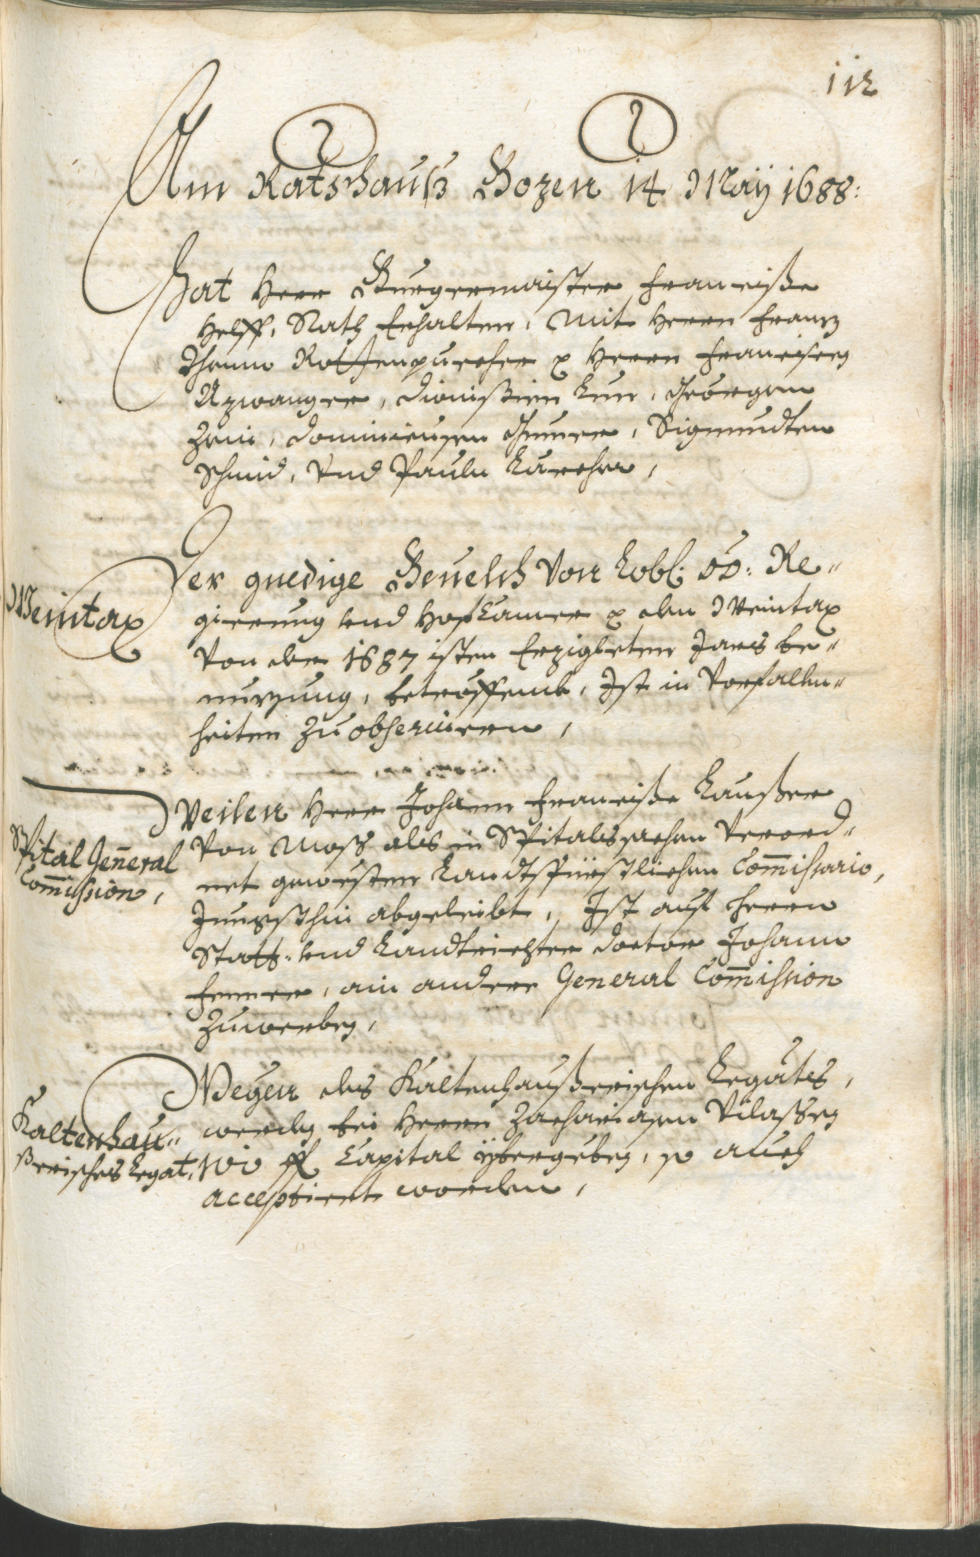 112
Am Ratshauß Bozen 14 May 1688:
Hat Herr Burgermaister Franciß
Helff, Rath gehalten, mit Herrn Franz
Thomn Rottenpurcher p Herrn Franciscg
Azwanger, Dionißien Kur, Geörgen
Zeni, Dominicusen Gumer, Sigmundten
Schmid, Vnd Pauln Kurcher,
Weintax
Der gnedige Beuelch Von Lobl: OÖ: Re„
gierung vnd Hof Camer p den Weintax
Von der 1687 isten erzigleten Jars be„
nuzung, betreffent, Ist in Vorfallen„
heiten zu obseruieren,
Spital General
Commission,
Weilen Herr Johann Franciß Laußer
Von Moss als in Spitalssachen Verord„
net gewester Landtsfürstlichen Commissario,
Jungsthin abgeleibt, Ist auf Herrn
Statt- vnd Landtrichter Doctor Johann
, ain andere General Commission
Zuwerbg,
Kaltenhau„
ßerisches Legat,
Wegen des Kaltenhaußerischen Legates,
werdg bei Herrn Zachariasen Vilaßeg
Capital ybergebg, so auch
acceptiert worden,